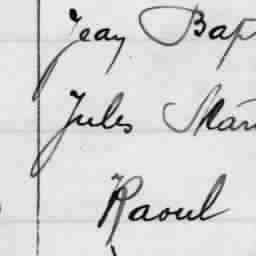 Jean Bap
Jules Mar
Raoul